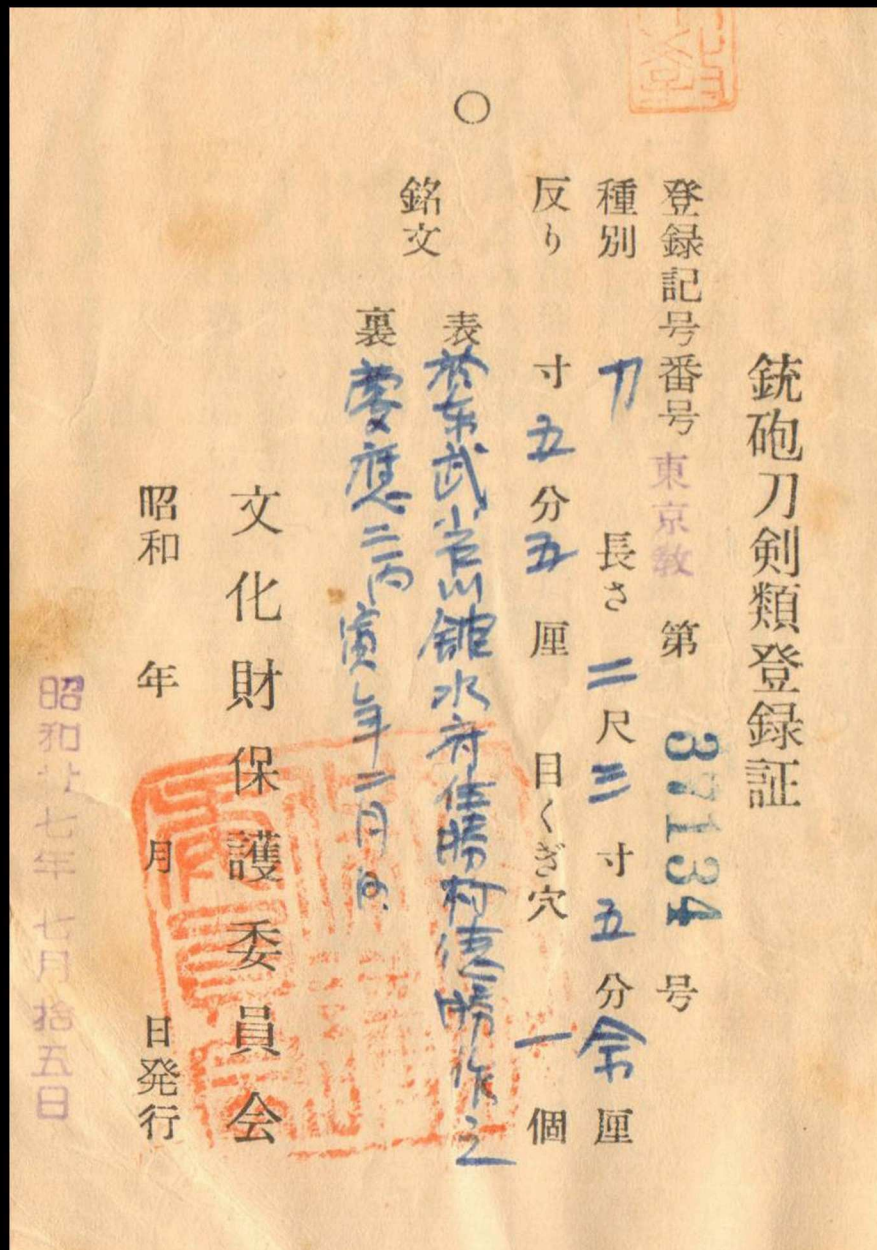 銃砲刀剣類登録証
登録記号番号 東京教 第 37134 号
種別 刀 長さ 二尺三寸五分令厘
反り 寸五分五厘 目くぎ穴 一個
銘文
表 於東武小石川館水府住勝村德勝作之
裏 慶應二丙寅年二月日
文化財保護委員会
昭和 年 月 日発行
昭和廿七年七月拾五日